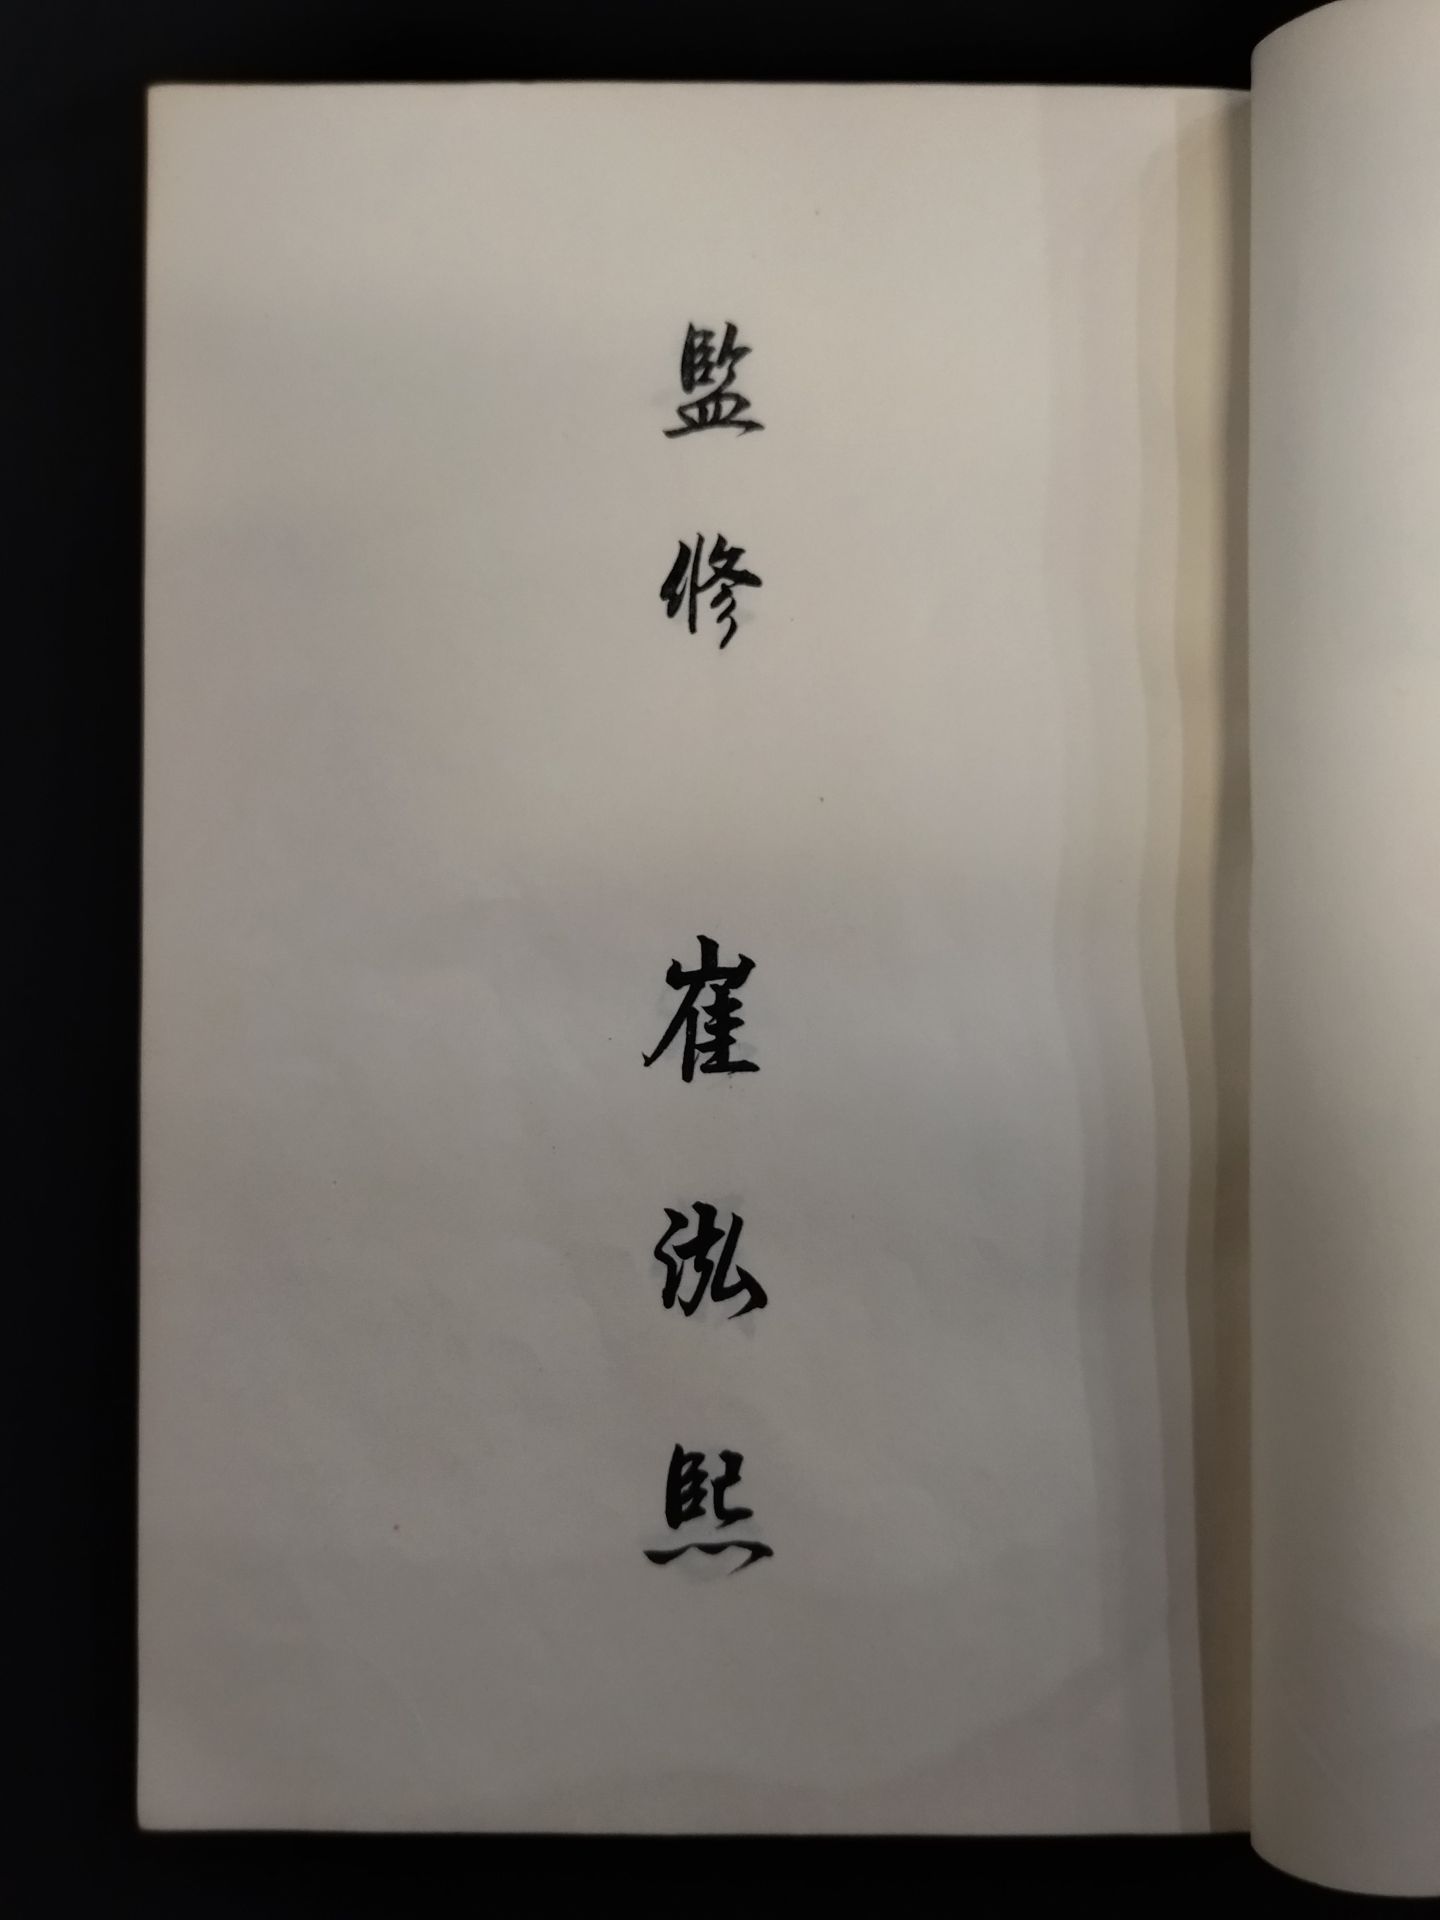 監修 崔泓熙